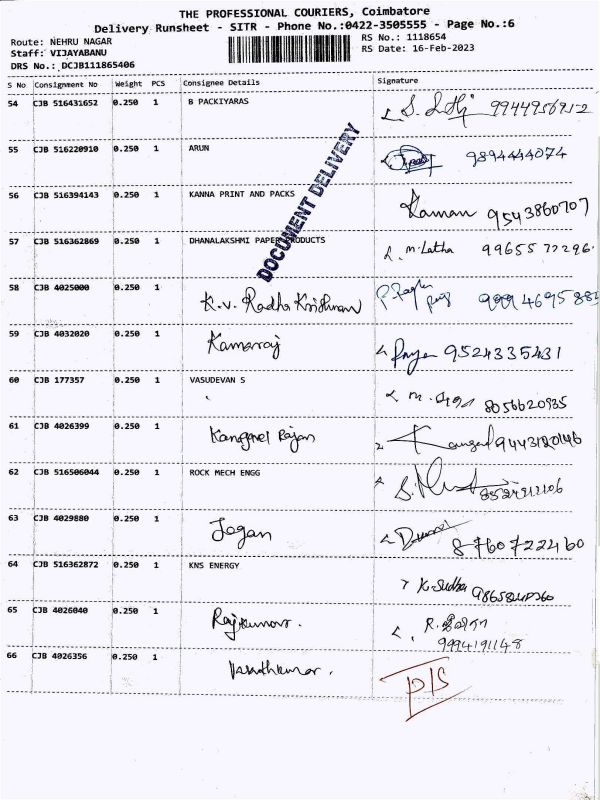 THE PROFESSIONAL COURIERS, Coimbatore
Delivery Runsheet - SITR - Phone No.:0422-3505555 - Page No.:6
Route: NEHRU NAGAR RS No.: 1118654
Staff: VIJAYABANU RS Date: 16-Feb-2023
DRS No.: DCJB111865406
S No Consignment No Weight PCS Consignee Details Signature
54 CJB 516431652 0.250 1 B PACKIYARAS
55 CJB 516220910 0.250 1 ARUN 9894444074
56 CJB 516394143 0.250 1 KANNA PRINT AND PACKS Raman 9543860707
57 CJB 516362869 0.250 1 DHANALAKSHMI PAPER PRODUCTS M. Latha 99655 72296
DOCUMENT DELIVERY
58 CJB 4025000 0.250 1 K.V. Radha Krishnan
59 CJB 4032020 0.250 1 Kamaraj 9524335431
60 CJB 177357 0.250 1 VASUDEVAN S 8056620935
61 CJB 4026399 0.250 1 Rajan 9443120146
62 CJB 516506044 0.250 1 ROCK MECH ENGG
63 CJB 4029880 0.250 1 Jagan 8760722460
64 CJB 516362872 0.250 1 KNS ENERGY K. Sudha
65 CJB 4026040 0.250 1 Rajkumar. 9994191148
66 CJB 4026356 0.250 1 Vasanthkumar.